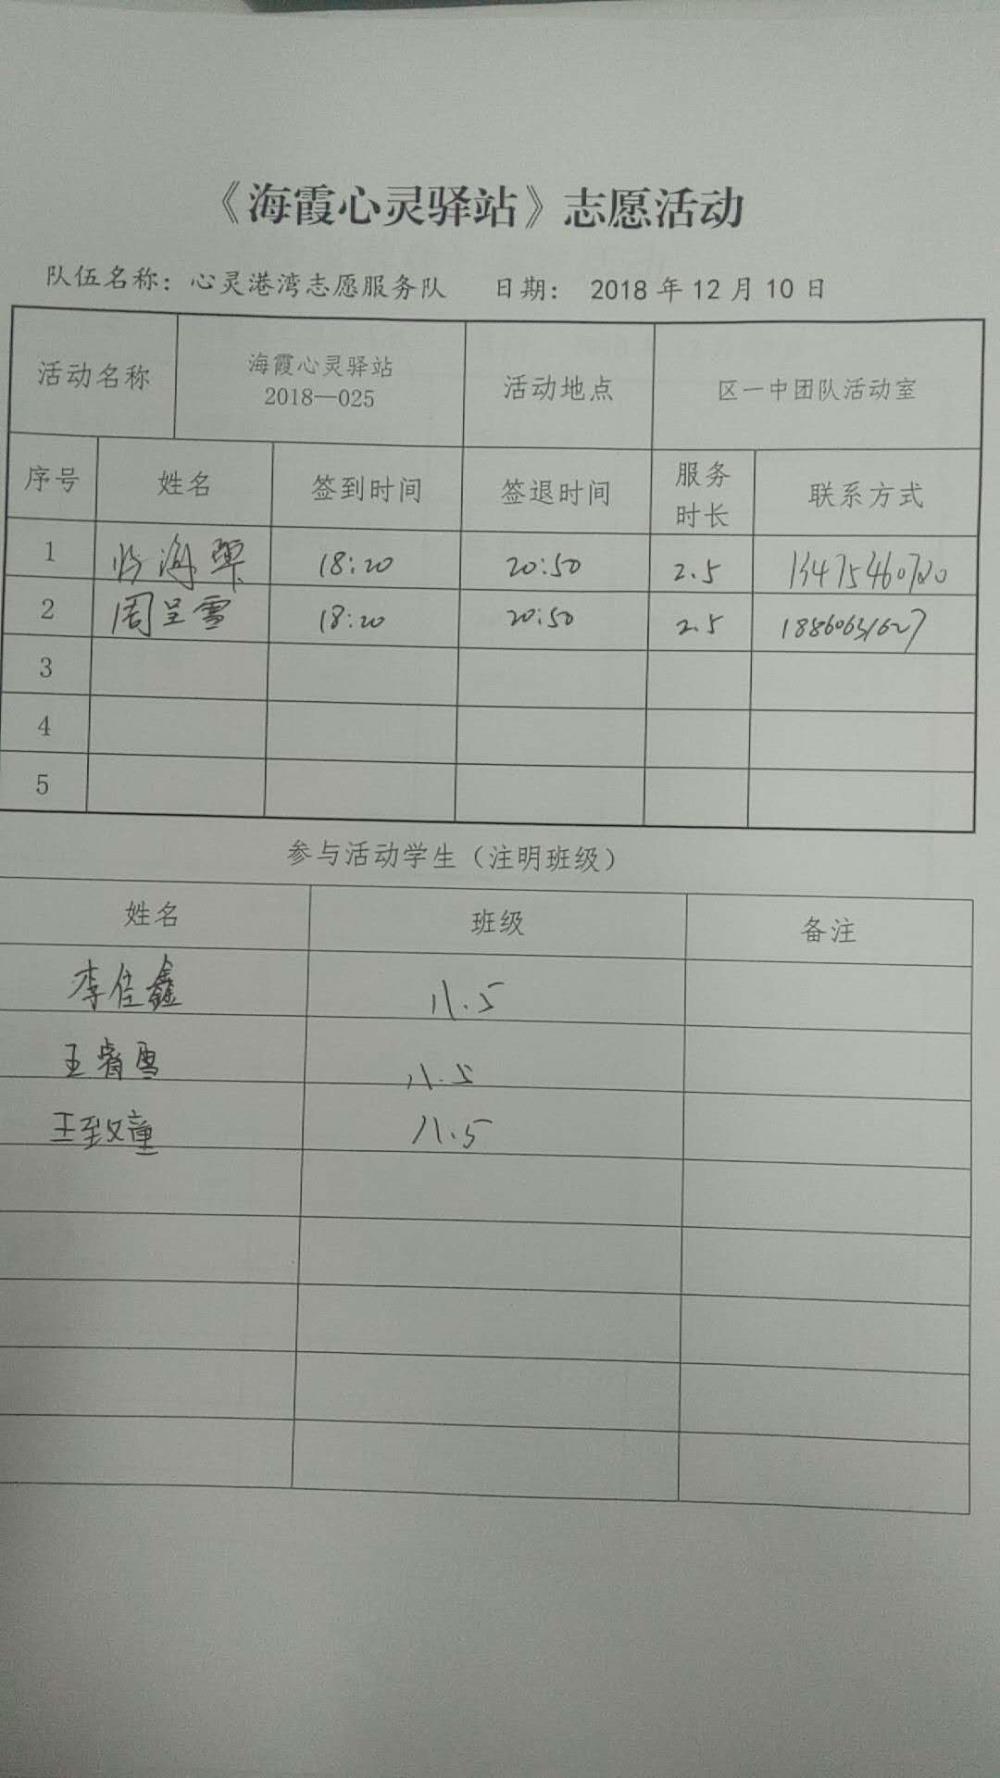 《海霞心灵驿站》志愿活动
队伍名称：心灵港湾志愿服务队 日期： 2018 年 12 月 10 日
活动名称 海霞心灵驿站 2018—025 活动地点 区一中团队活动室
序号 姓名 签到时间 签退时间 服务时长 联系方式
1 海 18:20 20:50 2.5 13475460720
2 周呈雪 18:20 20:50 2.5 18860631627
3
4
5
参与活动学生（注明班级）
姓名 班级 备注
李佳鑫 八.5
王睿雪 八.5
王致童 八.5